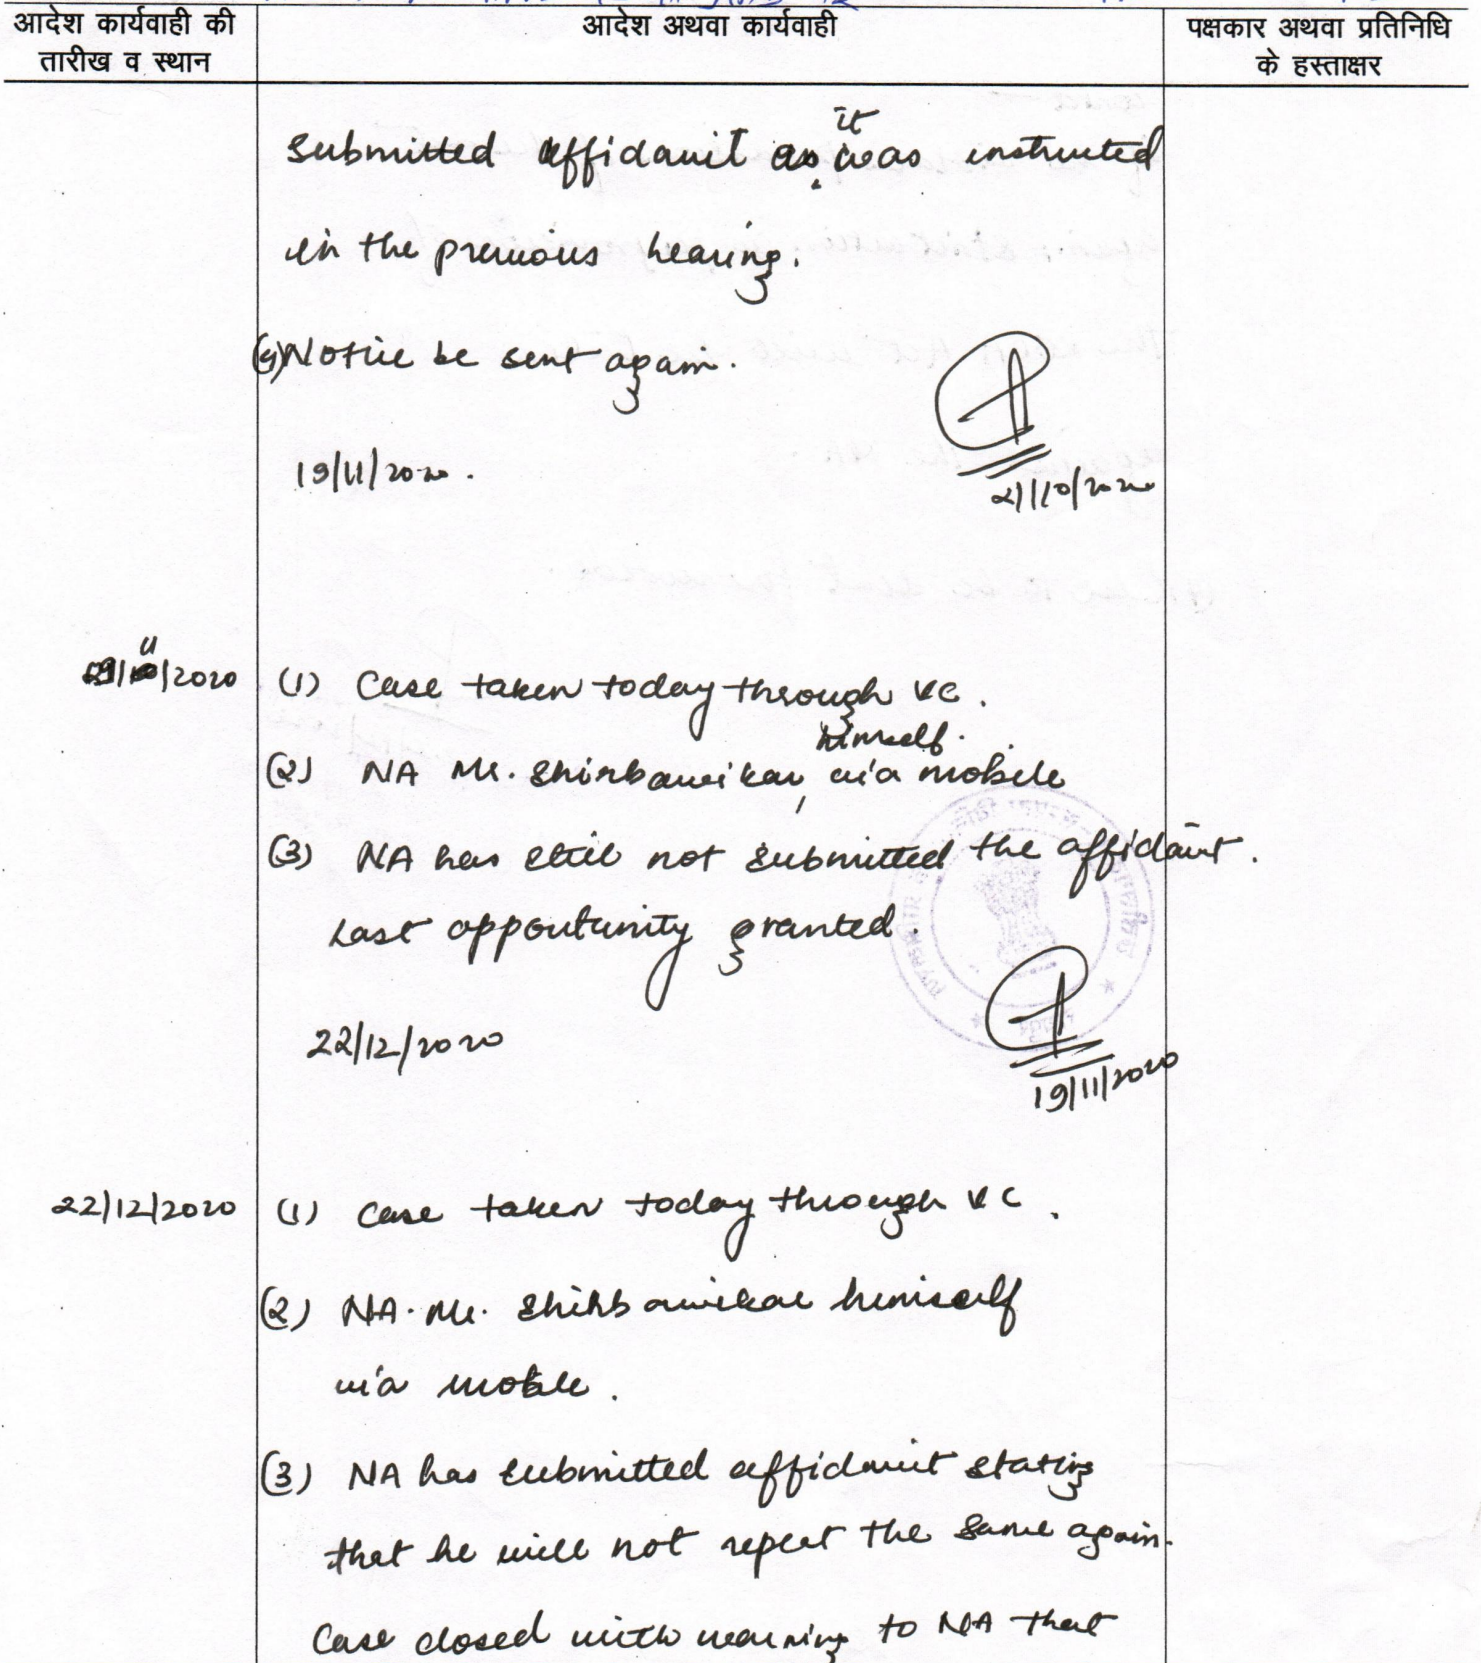 आदेश कार्यवाही की
तारीख व स्थान
आदेश अथवा कार्यवाही
पक्षकार अथवा प्रतिनिधि
के हस्ताक्षर
it
submitted affidavit as was instructed
in the previous hearing.
(4) Notice be sent again.
19/11/2020.
21/10/2020
19/11/2020
(1) Case taken today through VC.
himself.
(2) NA Mr. via mobile
(3) NA has still not submitted the affidavit.
Last opportunity granted.
22/12/2020
19/11/2020
22/12/2020
(1) Case taken today through VC.
(2) NA. Mr. himself
via mobile.
(3) NA has submitted affidavit stating
that he will not repeat the same again.
Case closed with warning to NA that